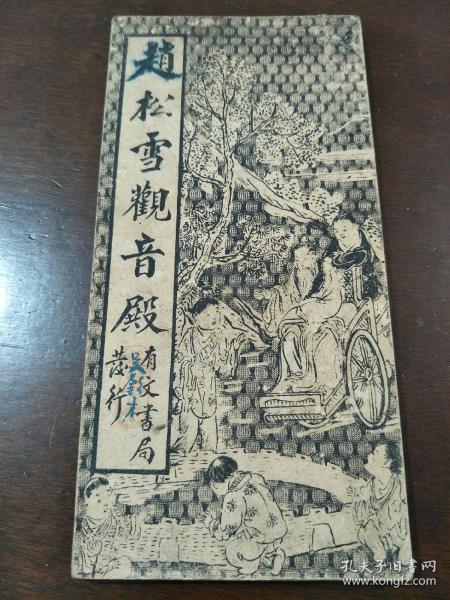 趙松雪觀音殿
有文書局
發行
孔夫子旧书网
www.kongfz.com